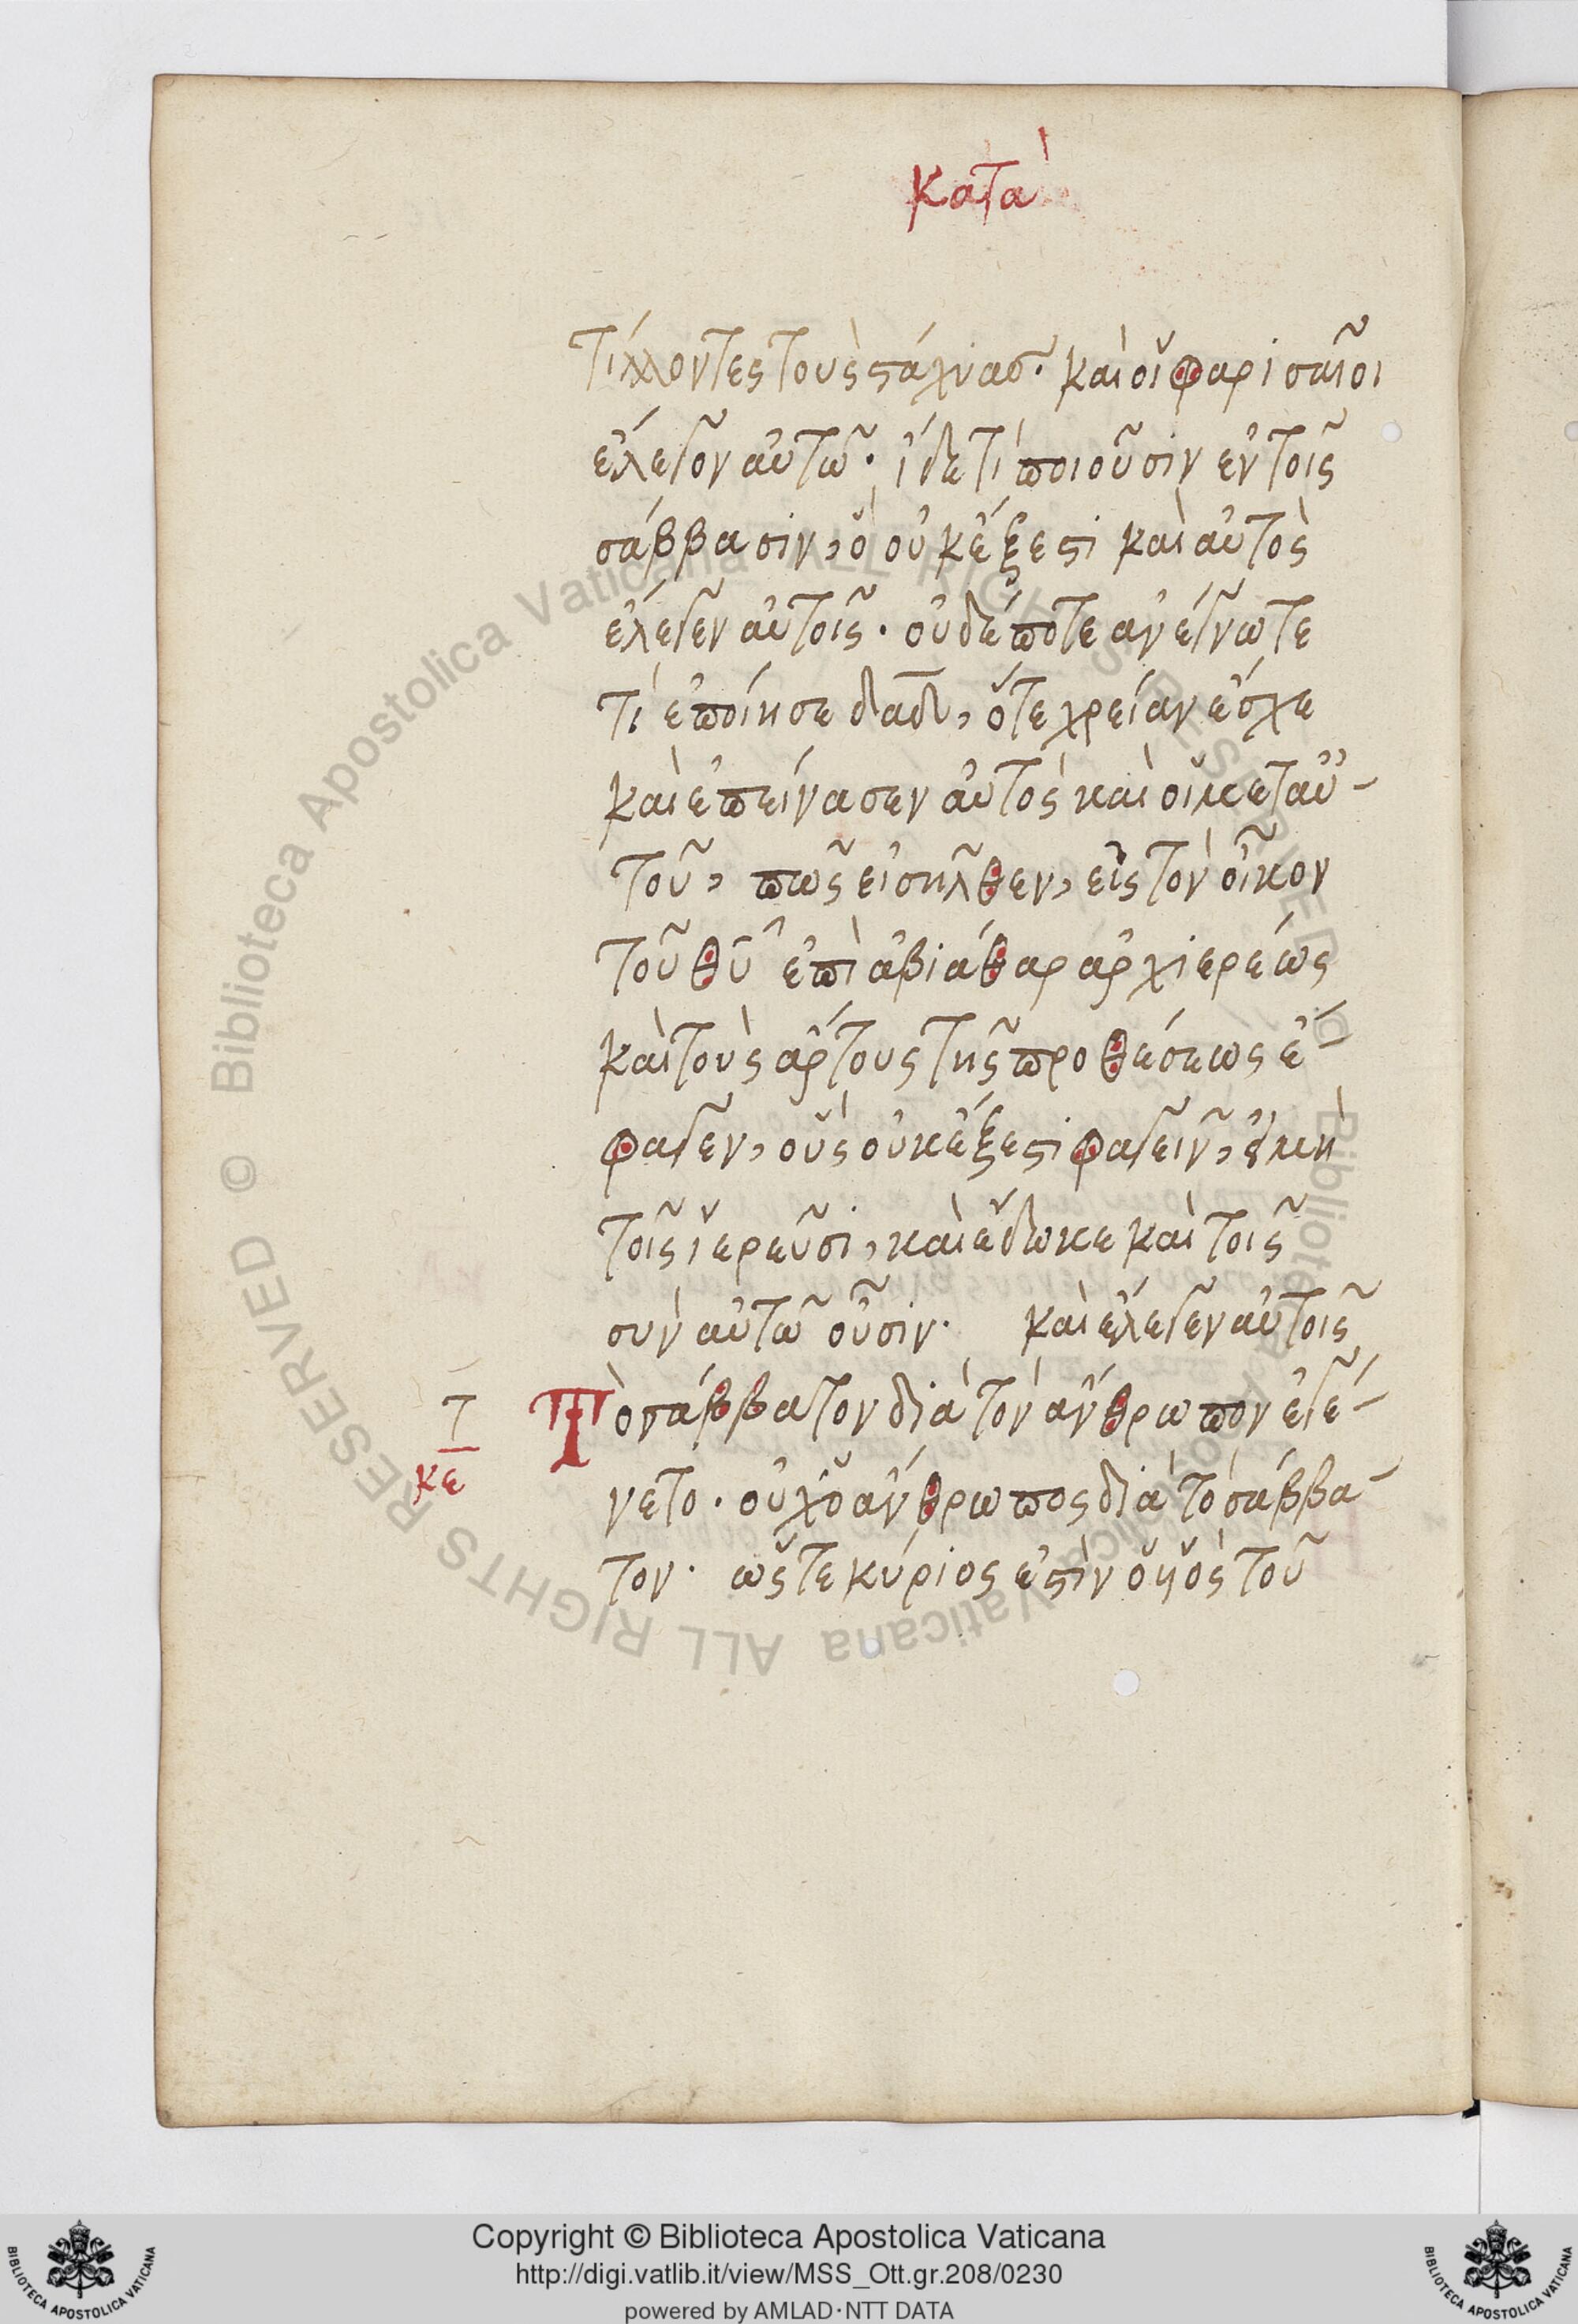 Κατὰ
τίλλοντες τοὺς στάχυασ. καὶ οἱ φαρισαῖοι
ἔλεγον αὐτῶ· ἴδε τί ποιοῦσιν ἐν τοῖς
σάββασιν, ὃ οὐκ ἔξεστι καὶ αὐτὸς
ἔλεγεν αὐτοῖς· οὐδέποτε ἀνέγνωτε
τί ἐποίησε δαδ, ὅτε χρείαν ἔσχε
καὶ ἐπείνασεν αὐτὸς καὶ οἱ μετ αὐ-
τοῦ, πῶς εἰσῆλθεν, εἰς τὸν οἶκον
τοῦ θυ ἐπὶ ἀβιάθαρ ἀρχιερέως
καὶ τοὺς ἄρτους τῆς προθέσεως ἔ-
φαγεν, οὓς οὐκ ἔξεστι φαγεῖν, εἰ μὴ
τοῖς ἱερεῦσι, καὶ ἔδωκε καὶ τοῖς
σὺν αὐτῶ οὖσιν. καὶ ἔλεγεν αὐτοῖς
Τ Τὸ σάββατον διὰ τὸν ἄνθρωπον ἐγέ-
κε
νετο. οὐχ ὁ ἄνθρωπος διὰ τὸ σάββα-
τον. ὥστε κύριος ἐστὶν ὁ υἱὸς τοῦ
© Biblioteca Apostolica Vaticana ALL RIGHTS RESERVED
© Biblioteca Apostolica Vaticana ALL RIGHTS RESERVED
Copyright © Biblioteca Apostolica Vaticana
http://digi.vatlib.it/view/MSS_Ott.gr.208/0230
powered by AMLAD·NTT DATA
BIBLIOTECA APOSTOLICA VATICANA
BIBLIOTECA APOSTOLICA VATICANA